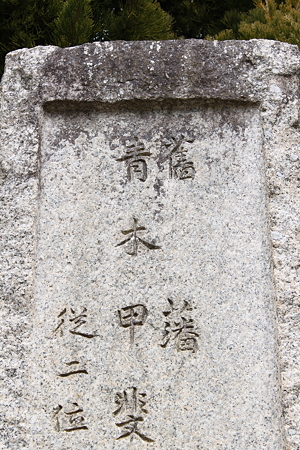 舊藩
青木甲斐
従二位